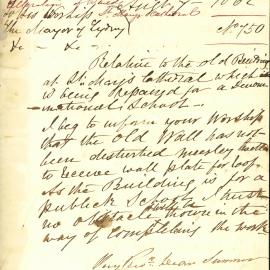 His Worship
The Mayor of Sydney
No 750
&c &c
Relative to the old Building
at St Mary's Cathedral which
is being Repaired for a Denom-
inational School.
I beg to inform your Worship
that the old Wall has not
been disturbed
to receive wall plate for roof
As the Building is for a
publick School I trust
no obstacle thrown in the
way of completing the work
Very Revd Dean